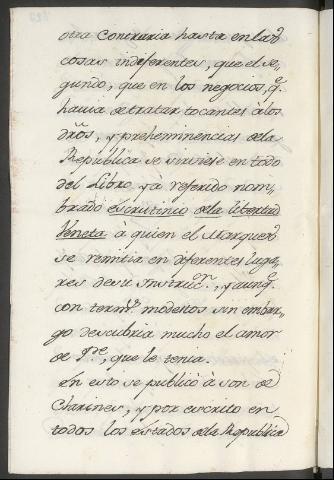 otra Contraria hasta en las
cosas indiferentes, que el se-
gundo, que en los negocios, q.e
havia de tratar tocantes à los
dros, y preheminencias dela
Republica se sirviese en todo
del Libro yà referido nom-
brado escrutinio dela libertad
Veneta à quien el Marques
se remitia en diferentes luga-
res desu instruc.n, y aunq.
con term.s modestos sin embar-
go descubria mucho el amor
de P.re, que le tenia.
En esto se publicò à son de
Clarines, y por escrito en
todos los estados dela Republica